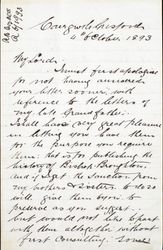 4th October, 1893
My Lord,
I must first apologise
for not having answered
your letter sooner, with
reference to the letters of
my late Grandfather.
I shall have very great pleasure
in letting you have them
for the purpose you require
them: that is for publishing the
history of Bishop
and if I get the sanction from
my brothers & sisters to do so
will give them over to
be preserved as you suggest.
but would not like to part
with them altogether without
first consulting. Some